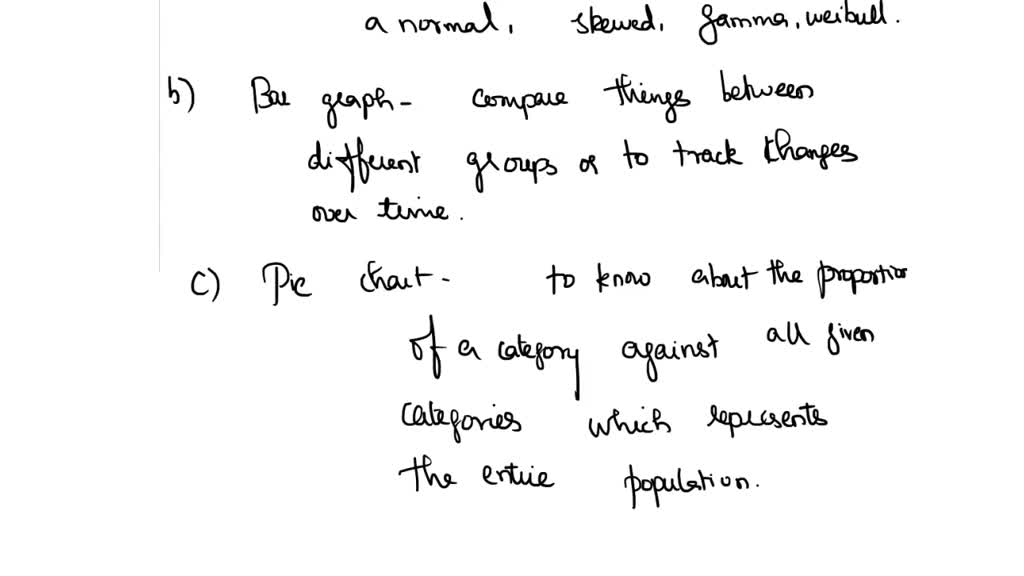 a normal, skewed, gamma, weibull.
b) Bar graph - compare things between
different groups or to track changes
over time.
c) Pie chart - to know about the proportion
of a category against all given
categories which represents
the entire population.